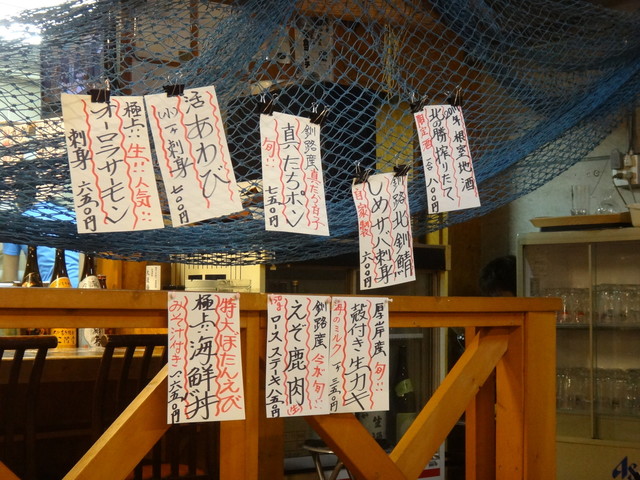 極上!!生!!人気!!
オーロラサーモン
刺身
六五〇円
活あわび
(小)一ヶ刺身
七〇〇円
釧路産真だら白子
真だちポン
旬!!
七五〇円
釧路北釧鯖
しめサバ刺身
自家製
六〇〇円
根室地酒
北の勝搾りたて
限定酒
一合八〇〇円
特大ぼたんえび
極上!!海鮮丼
みそ汁付き
一六五〇円
釧路産
えぞ鹿肉
ロースステーキ
厚岸産旬!!
殻付き生カキ
海のミルク
三五〇円